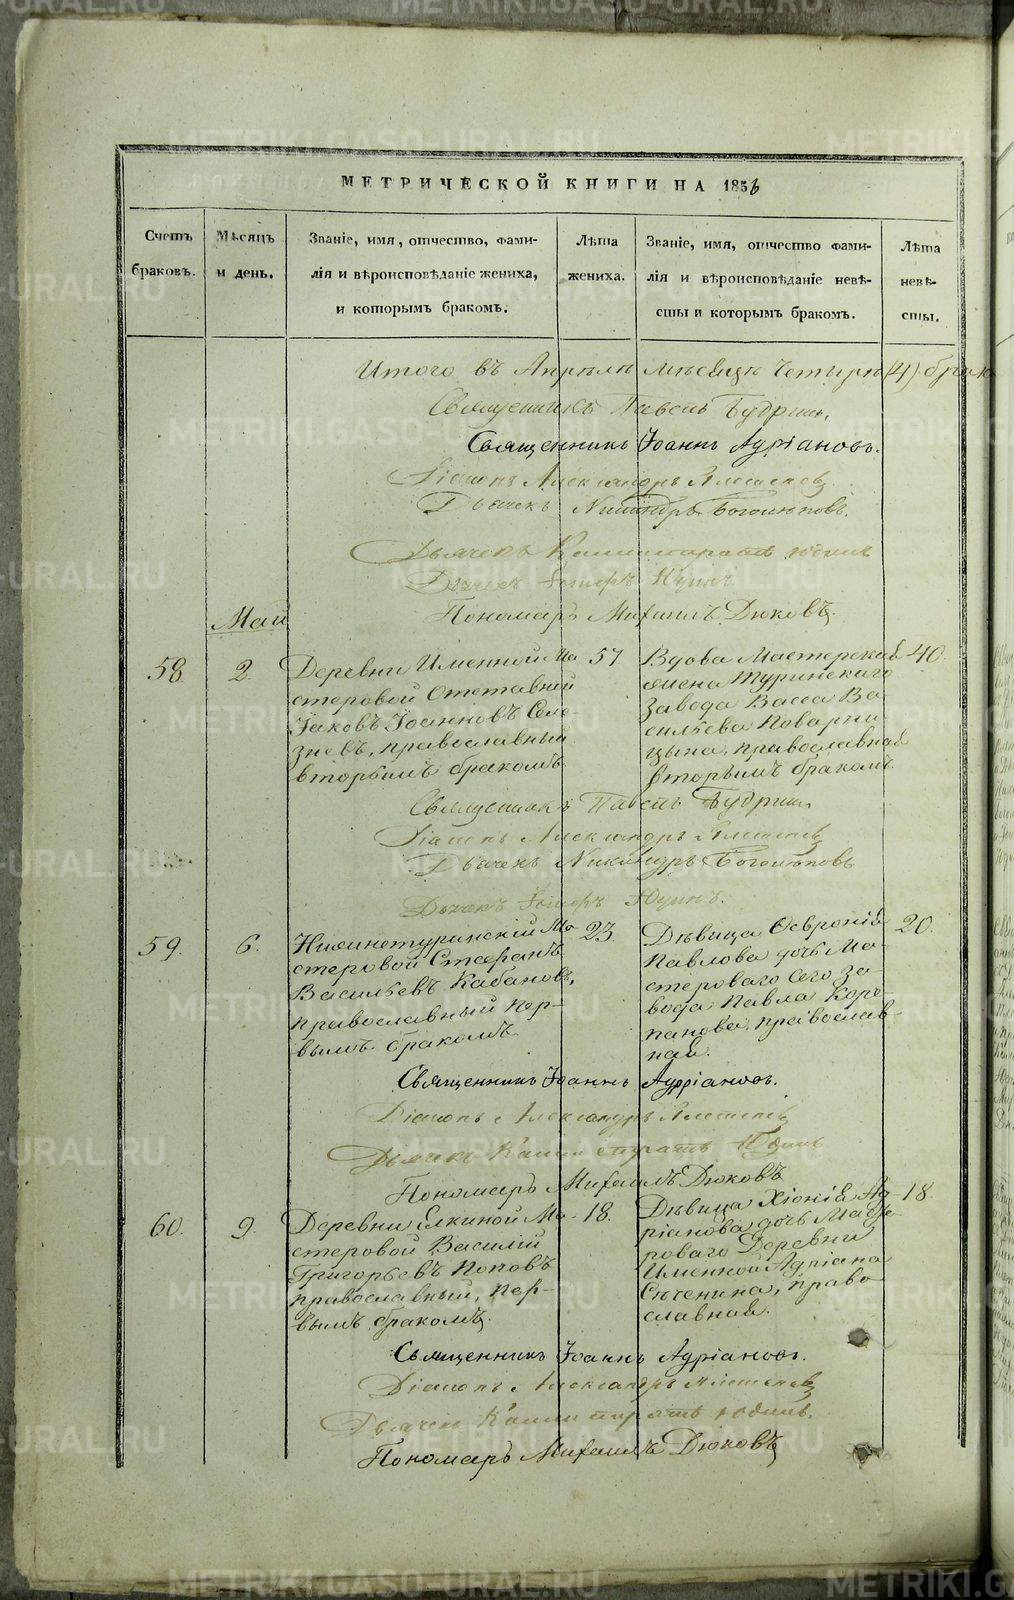 МЕТРИЧЕСКОЙ КНИГИ НА 185
Счетъ браковъ.
Мѣсяцъ и день.
Званіе, имя, отчество, фами-
лія и вѣроисповѣданіе жениха,
и которымъ бракомъ.
Лѣта жениха.
Званіе, имя, отчество фами-
лія и вѣроисповѣданіе невѣ-
сты и которымъ бракомъ.
Лѣта невѣ-
сты.
Итого въ Апрѣлѣ мѣсяцѣ четыре (4) брак
Священникъ Павелъ Будринъ.
Священникъ Іоаннъ Адріановъ.
Діаконъ Александръ
Дьячекъ Никандръ
Дьячекъ
Дьячекъ
Пономарь Михаилъ Дюковъ.
Май
58
2
Деревни Именной Ма
стеровой Отставный
Іаковъ Іоанновъ Селе
зневъ, православный
вторымъ бракомъ
57
Вдова Мастерская
жена Туринскаго
завода Васса Ва
сильева Поварни
цына, православная
вторымъ бракомъ.
40
Священникъ Павелъ Будринъ
Діаконъ Александръ
Дьячекъ Никандръ
Дьячекъ
59.
6.
Нижнетуринскій Ма
стеровой Стефанъ
Васильевъ Кабановъ,
православный пер-
вымъ бракомъ
23.
Дѣвица Ѳевронія
Павлова дочь Ма-
стероваго сего за
вода Павла Коро-
панова, православ-
ная.
20.
Священникъ Іоаннъ Адріановъ.
Діаконъ Александръ
Дьячекъ
Пономарь Михаилъ Дюковъ
60.
9.
Деревни Елкиной Ма-
стеровой Василій
Григорьевъ Поповъ
православный, пер-
вымъ бракомъ.
18.
Дѣвица Хіонія Ад-
ріанова дочь Масте-
роваго Деревни
Именной Адріана
Сѣченина, право
славная.
18
Священникъ Іоаннъ Адріановъ.
Діаконъ Александръ
Дьячекъ
Пономарь Михаилъ Дюковъ
METRIKI.GASO-URAL.RU